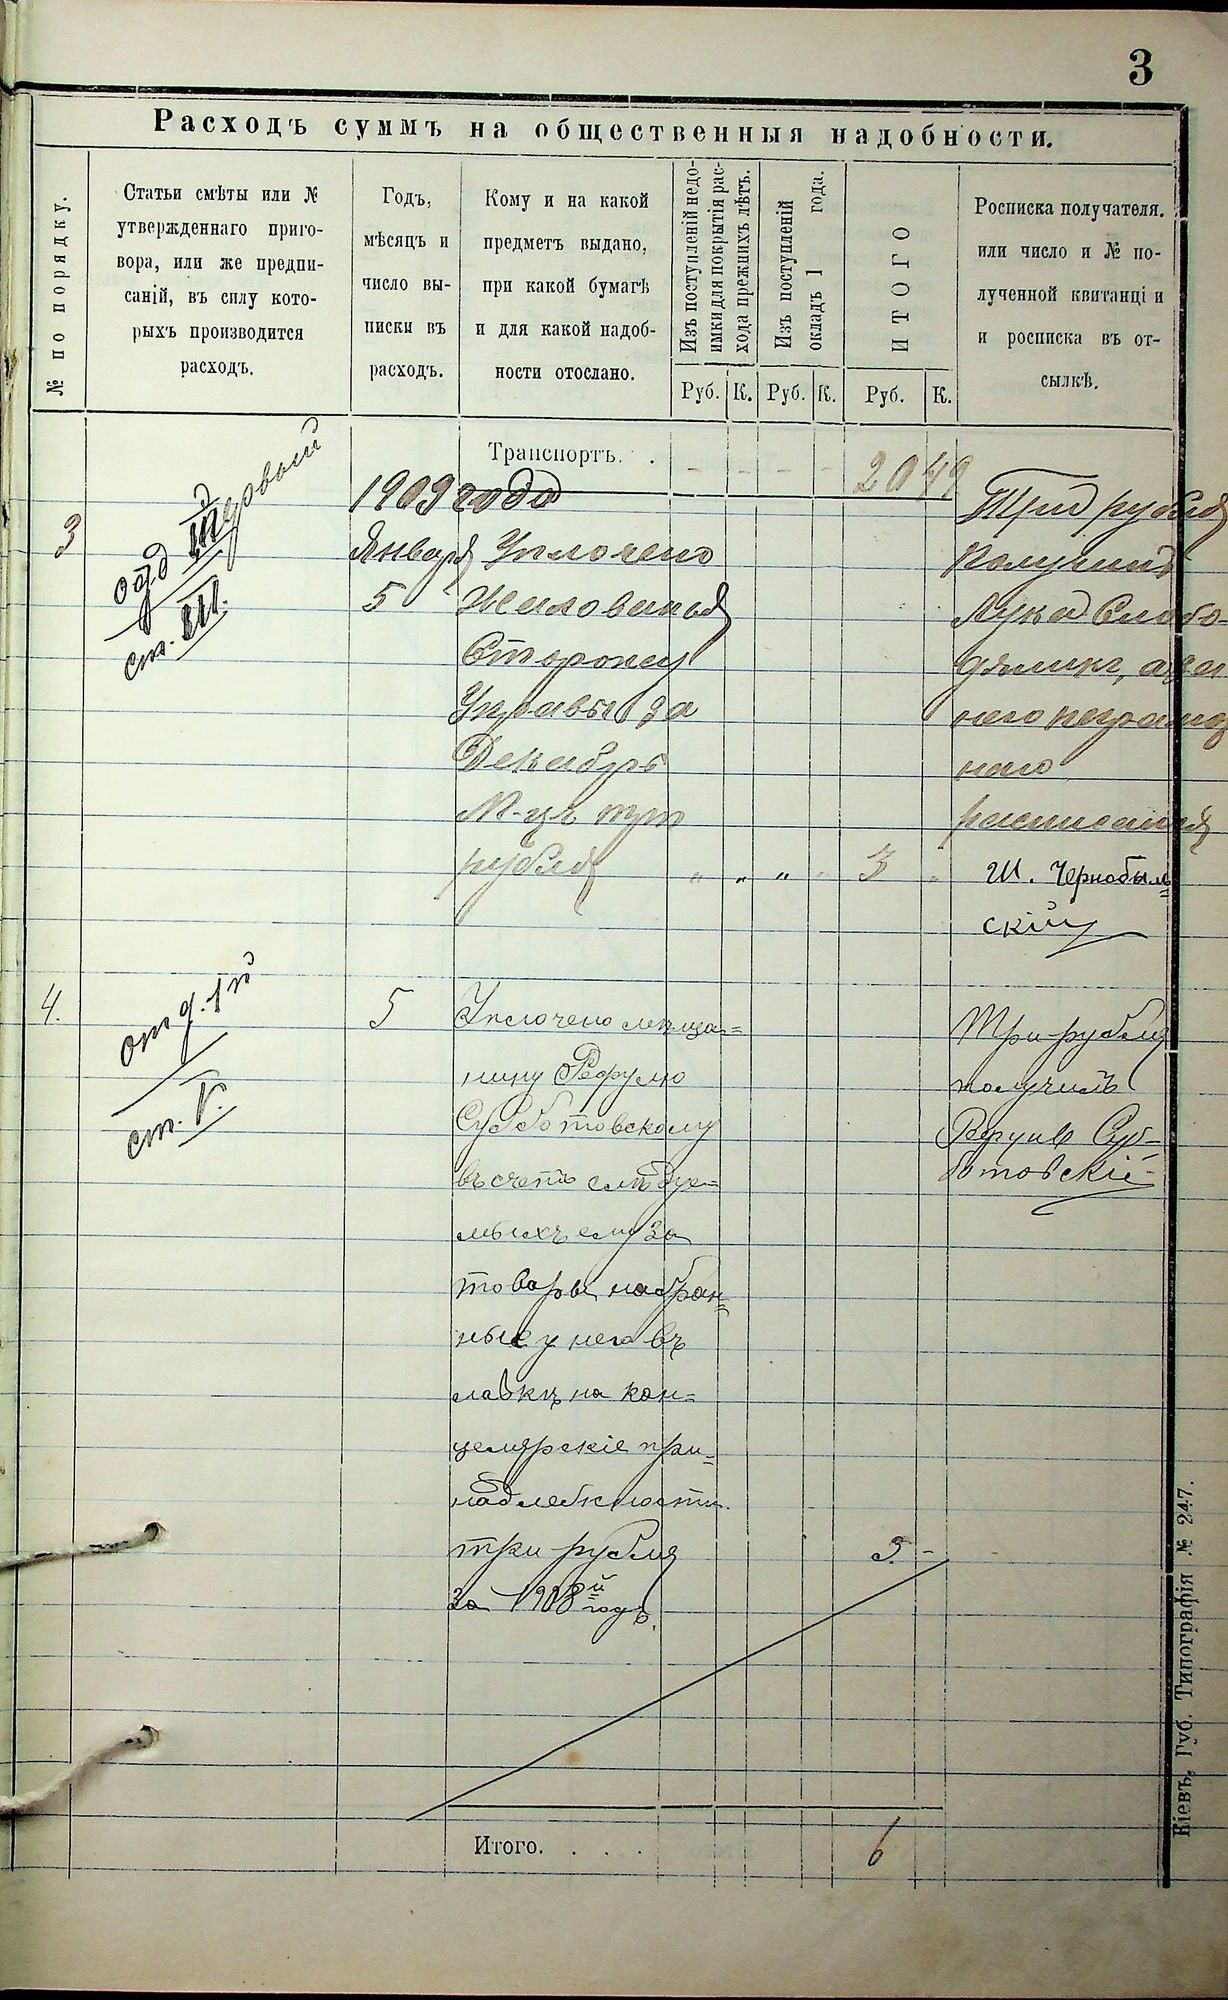 3
Расходъ суммъ на общественныя надобности.
№ по порядку.
Статьи смѣты или №
утвержденнаго приго-
вора, или же предпи-
саній, въ силу кото-
рыхъ производится
расходъ.
Годъ,
мѣсяцъ и
число вы-
писки въ
расходъ.
Кому и на какой
предметъ выдано,
при какой бумагѣ
и для какой надоб-
ности отослано.
Изъ поступленій недо-
имки для покрытія рас-
хода прежнихъ лѣтъ.
Изъ поступленій
окладъ 1 года.
ИТОГО
Росписка получателя.
или число и № по-
лученной квитанці и
и росписка въ от-
сылкѣ.
Руб. К. Руб. К. Руб. К.
Транспортъ. . - - - - 20 49
1909 года
3
Января
5
Уплочено
Жалованья
Сторожу
Управы за
Декабрь
М-цъ три
рубля " " " " 3 "
Три рубля
Получилъ
Лука Слобо-
него неграмот
наго
росписался
Ш. Чернобыль
скій
4.
отд. 1й
ст. V.
5
Уплочено мѣща=
нину Рефулю
Субботовскому
въ счетъ слѣдуе=
мыхъ ему за
товары набран=
ные у него въ
лавкѣ на кан=
целярскіе при=
надлежности
три рубля 3 -
за 1908й годъ.
Три рубля
получилъ
Рефулъ Суб-
ботовскій
Итого. . . . . 6
Кіевъ, Губ. Типографія № 247.